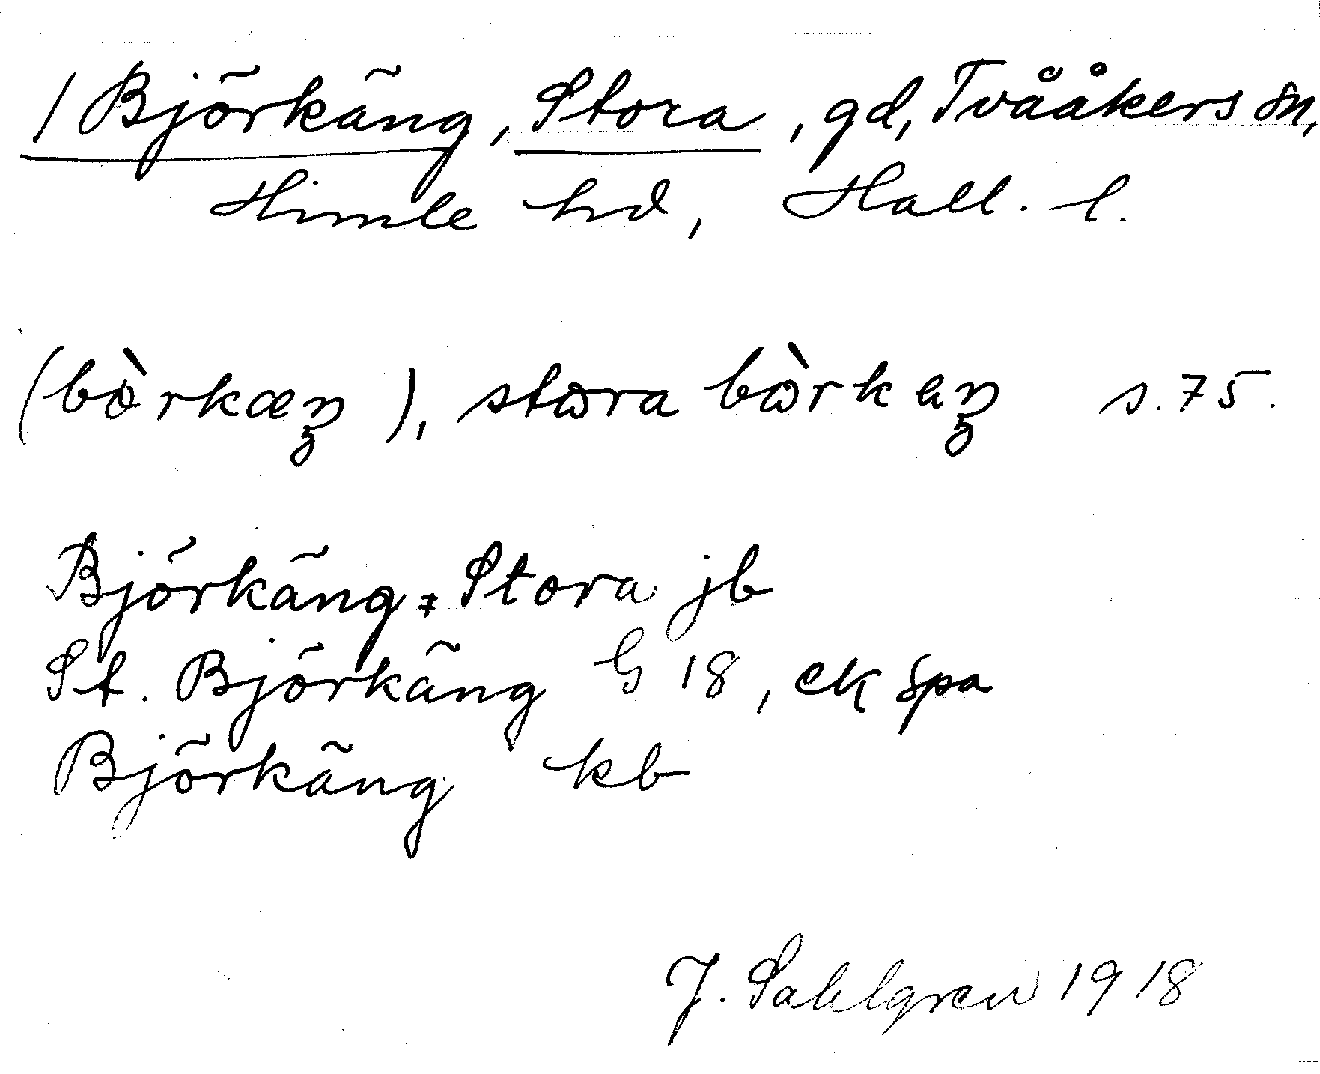 / Björkäng, Stora, gd, Tvååkers sn,
Himle hd, Hall. l.
(bɵ̀rkæŋ), stɷra bɵ̀rkaŋ s. 75.
Björkäng, Stora jb
St. Björkäng G 18, ek spa
Björkäng kb
J. Sahlgren 1918